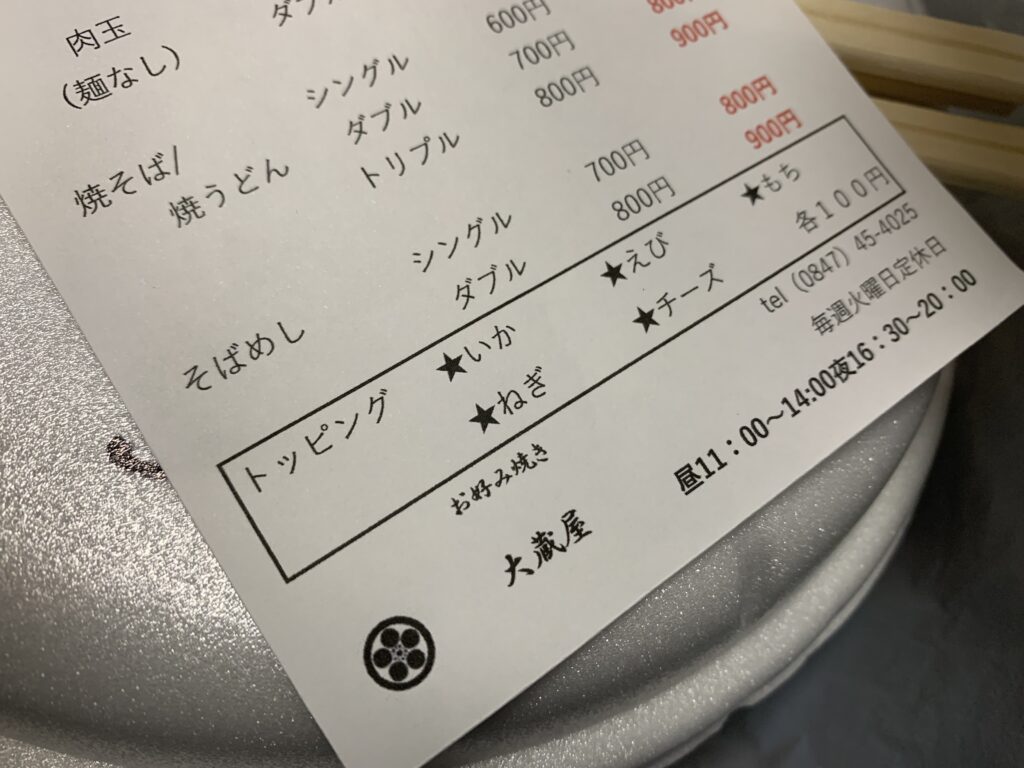 肉玉
(麺なし)
焼そば/ シングル 600円
焼うどん ダブル 700円 800円
トリプル 800円 900円
そばめし シングル 700円 800円
ダブル 800円 900円
トッピング ★いか ★えび ★もち
★ねぎ ★チーズ 各１００円
お好み焼き tel（0847）45-4025
大蔵屋 毎週火曜日定休日
昼11：00～14:00夜16：30～20：00